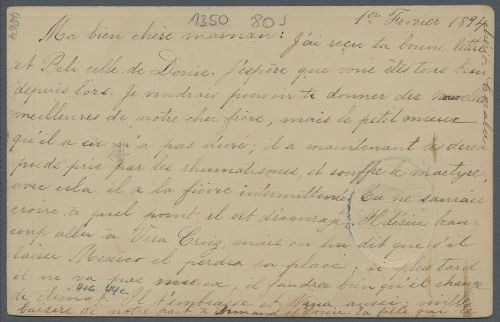 1350 80J
1er Février 1894
Ma bien chère maman: J'ai reçu ta bonne lettre
et celle de Denise. J'espère que vous êtes tous bien
depuis lors. Je voudrais pouvoir te donner des nouvelles
meilleures de notre cher frère, mais le petit mieux
qu'il a eu n'a pas duré; il a maintenant les deux
pieds pris par les rhumatismes, et souffre le martyre,
avec cela il a la fièvre intermittente. Tu ne saurais
croire à quel point il est découragé. Il désire beau-
coup aller à Vera Cruz, mais on lui dit que s'il
laisse Mexico il perdra sa place; si plus tard
il ne va pas mieux, il faudra bien qu'il change
de climat. Il t'embrasse et aussi; mille
baisers de notre part à Armand et